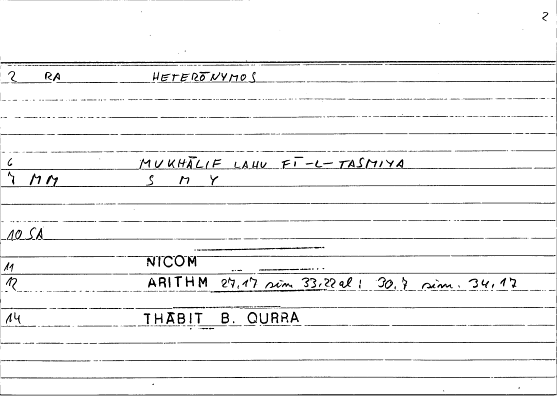 2
2 RA HETERŌNYMOS
6 MUKHĀLIF LAHU FĪ-L-TASMIYA
7 MM S M Y
10 SA
11 NICOM
12 ARITHM 27,17 sim 33,22 al; 30,7 sim. 34,17
14 THĀBIT B. QURRA